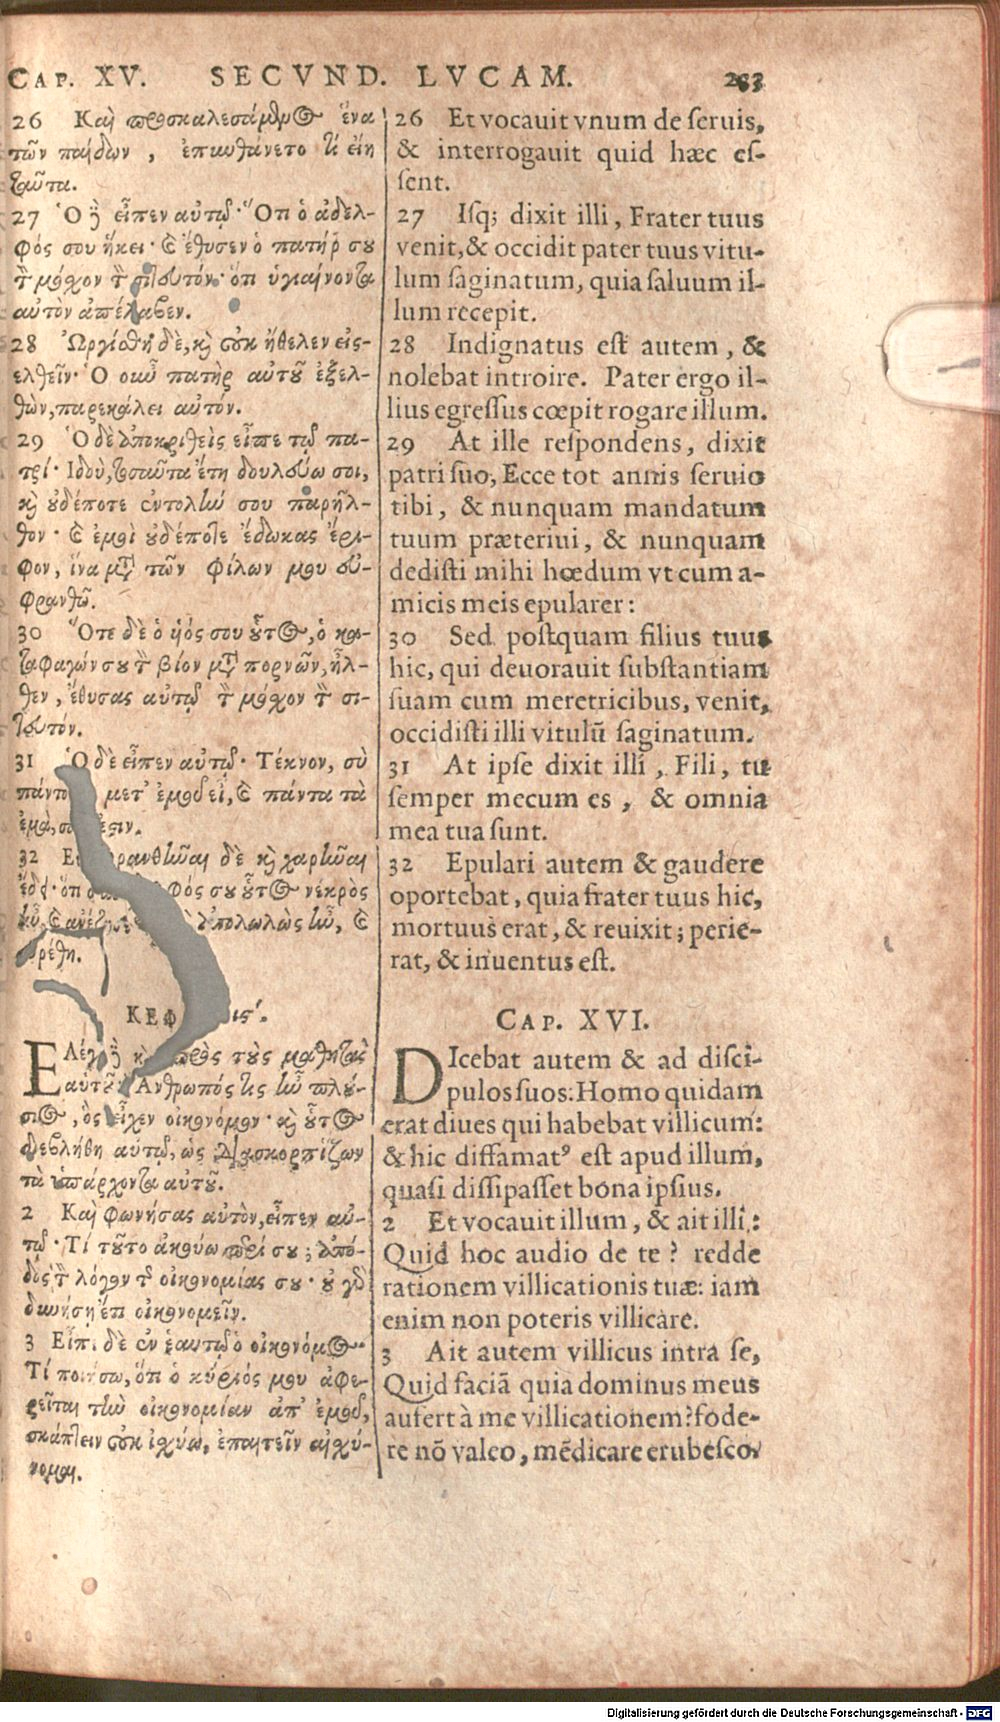 CAP. XV. SECVND. LVCAM. 233
26 Καὶ προσκαλεσάμενος ἕνα
τῶν παίδων, ἐπυνθάνετο τί εἴη
ταῦτα.
27 Ὁ δὲ εἶπεν αὐτῷ· Ὅτι ὁ ἀδελ-
φός σου ἥκει· καὶ ἔθυσεν ὁ πατήρ σου
τὸν μόσχον τὸν σιτευτόν· ὅτι ὑγιαίνοντα
αὐτὸν ἀπέλαβεν.
28 Ὠργίσθη δὲ, καὶ οὐκ ἤθελεν εἰς-
ελθεῖν· Ὁ οὖν πατὴρ αὐτοῦ ἐξελ-
θὼν, παρεκάλει αὐτόν.
29 Ὁ δὲ ἀποκριθεὶς εἶπε τῷ πα-
τρί· Ἰδοὺ, τοσαῦτα ἔτη δουλεύω σοι,
καὶ οὐδέποτε ἐντολήν σου παρῆλ-
θον· καὶ ἐμοὶ οὐδέποτε ἔδωκας ἔρι-
φον, ἵνα μετὰ τῶν φίλων μου εὐ-
φρανθῶ.
30 Ὅτε δὲ ὁ υἱός σου οὗτος, ὁ κα-
ταφαγών σου τὸν βίον μετὰ πορνῶν, ἦλ-
θεν, ἔθυσας αὐτῷ τὸν μόσχον τὸν σι-
τευτόν.
31 Ὁ δὲ εἶπεν αὐτῷ· Τέκνον, σὺ
μετ' ἐμοῦ εἶ, καὶ πάντα τὰ
ἐμὰ,
32 δὲ καὶ χαρῆναι
ἔδει· ὅτι σου οὗτος νεκρὸς
ἦν, καὶ ἀπολωλὼς ἦν, καὶ
εὑρέθη.
ις΄.
Ἔλεγε δὲ καὶ πρὸς τοὺς μαθητὰς
αὐτοῦ· Ἄνθρωπός τις ἦν πλού-
σιος, ὃς εἶχεν οἰκονόμον· καὶ οὗτος
διεβλήθη αὐτῷ, ὡς διασκορπίζων
τὰ ὑπάρχοντα αὐτοῦ.
2 Καὶ φωνήσας αὐτὸν, εἶπεν αὐ-
τῷ· Τί τοῦτο ἀκούω περί σου; ἀπό-
δος τὸν λόγον τῆς οἰκονομίας σου· οὐ γὰρ
δυνήσῃ ἔτι οἰκονομεῖν.
3 Εἶπε δὲ ἐν ἑαυτῷ ὁ οἰκονόμος·
Τί ποιήσω, ὅτι ὁ κύριός μου ἀφαι-
ρεῖται τὴν οἰκονομίαν ἀπ' ἐμοῦ,
σκάπτειν οὐκ ἰσχύω, ἐπαιτεῖν αἰσχύ-
νομαι.
26 Et vocauit vnum de seruis,
& interrogauit quid hæc es-
sent.
27 Isq; dixit illi, Frater tuus
venit, & occidit pater tuus vitu-
lum saginatum, quia saluum il-
lum recepit.
28 Indignatus est autem, &
nolebat introire. Pater ergo il-
lius egressus cœpit rogare illum.
29 At ille respondens, dixit
patri suo, Ecce tot annis seruio
tibi, & nunquam mandatum
tuum præteriui, & nunquam
dedisti mihi hœdum vt cum a-
micis meis epularer:
30 Sed postquam filius tuus
hic, qui deuorauit substantiam
suam cum meretricibus, venit,
occidisti illi vitulū saginatum.
31 At ipse dixit illi, Fili, tu
semper mecum es, & omnia
mea tua sunt.
32 Epulari autem & gaudere
oportebat, quia frater tuus hic,
mortuus erat, & reuixit; perie-
rat, & inuentus est.
CAP. XVI.
DIcebat autem & ad disci-
pulos suos: Homo quidam
erat diues qui habebat villicum:
& hic diffamatꝰ est apud illum,
quasi dissipasset bona ipsius.
2 Et vocauit illum, & ait illi:
Quid hoc audio de te? redde
rationem villicationis tuæ: iam
enim non poteris villicare.
3 Ait autem villicus intra se,
Quid faciā quia dominus meus
aufert à me villicationem? fode-
re nō valeo, mēdicare erubesco.
Digitalisierung gefördert durch die Deutsche Forschungsgemeinschaft - DFG